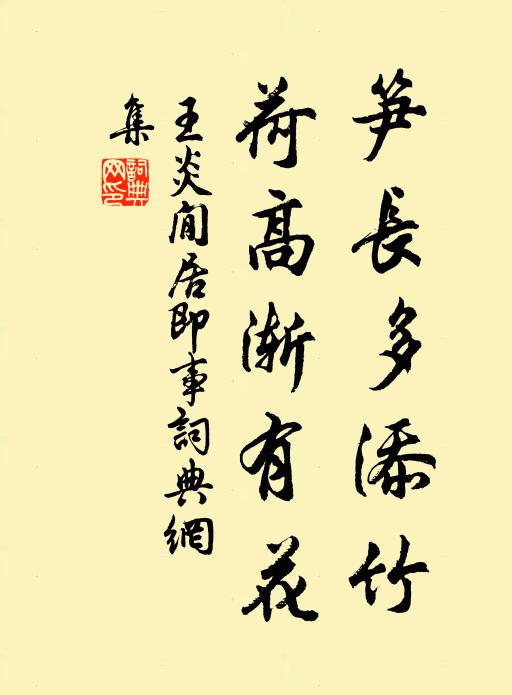 笋長多添竹
荷高漸有花
王炎閒居即事詞典網
集
詞典
网印